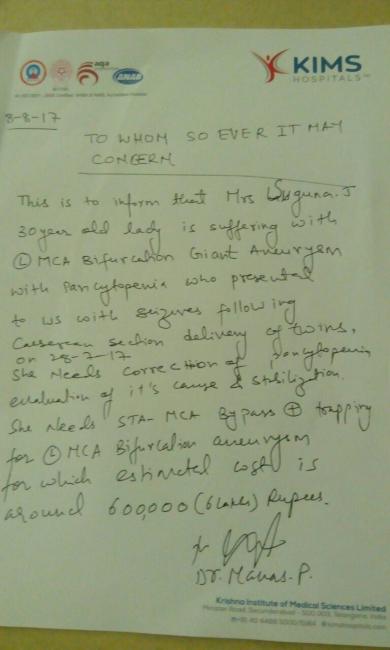 aqa
ANAB
KIMS
HOSPITALS
8-8-17
TO WHOM SO EVER IT MAY
CONCERN
This is to inform that Mrs Suguna.J
30 year old lady is suffering with
Ⓛ MCA Bifurcation Giant Aneurysm
with Pancytopenia who presented
to us with seizures following
Caeserean section delivery of twins,
on 28-7-17
She Needs correction of pancytopenia
evaluation of it's cause & stabilization.
She Needs STA-MCA Bypass ⊕ trapping
for Ⓛ MCA Bifurcation aneurysm
for which estimated cost is
around 600,000 (6 Lakhs) Rupees.
Dr. Manas. P.
Krishna Institute of Medical Sciences Limited
Minister Road, Secunderabad - 500 003, Telangana, India